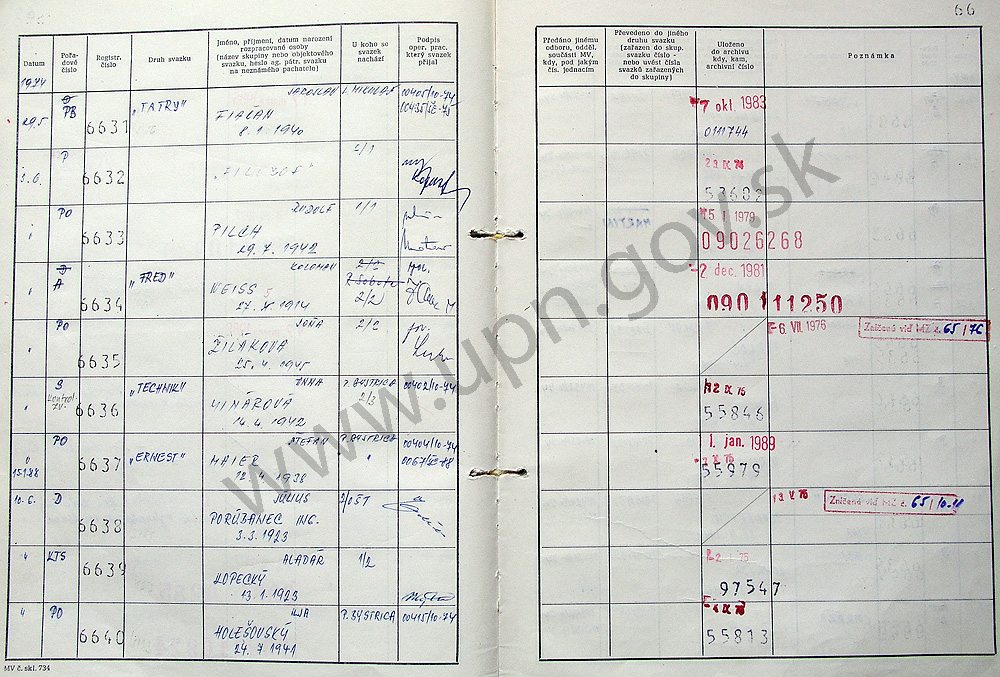 66
Datum
Pořadové číslo
Registr. číslo
Druh svazku
Jméno, příjmení, datum narození
rozpracované osoby
(název skupiny nebo objektového
svazku, heslo ag. pátr. svazku
na neznámého pachatele)
U koho se
svazek
nachází
Podpis
oper. prac.
který svazek
přijal
Předáno jinému
odboru, odděl.
součásti MV,
kdy, pod jakým
čís. jednacím
Převedeno do jiného
druhu svazku
(zařazen do skup.
svazku číslo -
nebo uvést čísla
svazků zařazených
do skupiny)
Uloženo
do archivu
kdy, kam,
archivní číslo
Poznámka
1974
29.5
PB
6631
„TATRY"
JAROSLAV
FIAČAN
8.1.1940
L. MIKULÁŠ
00405/10-74
7 okt. 1983
0111744
3.6.
P
6632
2/1
53682
"
PO
6633
RUDOLF
PILCH
29.7.1942
1/1
15 I 1979
09026268
"
D
A
6634
„FRED"
KOLOMAN
WEISS
27. X 1914
2/2
R. Sobota
2/2
-2 dec. 1981
090 111250
"
PO
6635
SOŇA
ŽILÁKOVÁ
25.4.1945
2/2
-6. VII. 1976
Zničené viď MZ č. 65/76
"
S
Kontrol.
zv.
6636
„TECHNIK"
ANNA
MINÁROVÁ
14.4.1942
P. BYSTRICA
2/3
00402/10-74
12 IX 75
55846
"
15.1.88
PO
6637
„ERNEST"
ŠTEFAN
MAIER
12.4.1938
P. BYSTRICA
"
00404/10-74
1. jan. 1989
55979
10.6.
D
6638
JÚLIUS
PORUBANEC ING.
3.3.1923
13 V 75
Zničené viď MZ č. 65/10-
"
KTS
6639
ALADÁR
KOPECKÝ
13.1.1923
1/2
97547
"
PO
6640
ILJA
HOLEŠOVSKÝ
24.7.1941
P. BYSTRICA
00415/10-74
55813
MV č. skl. 734
www.upn.gov.sk